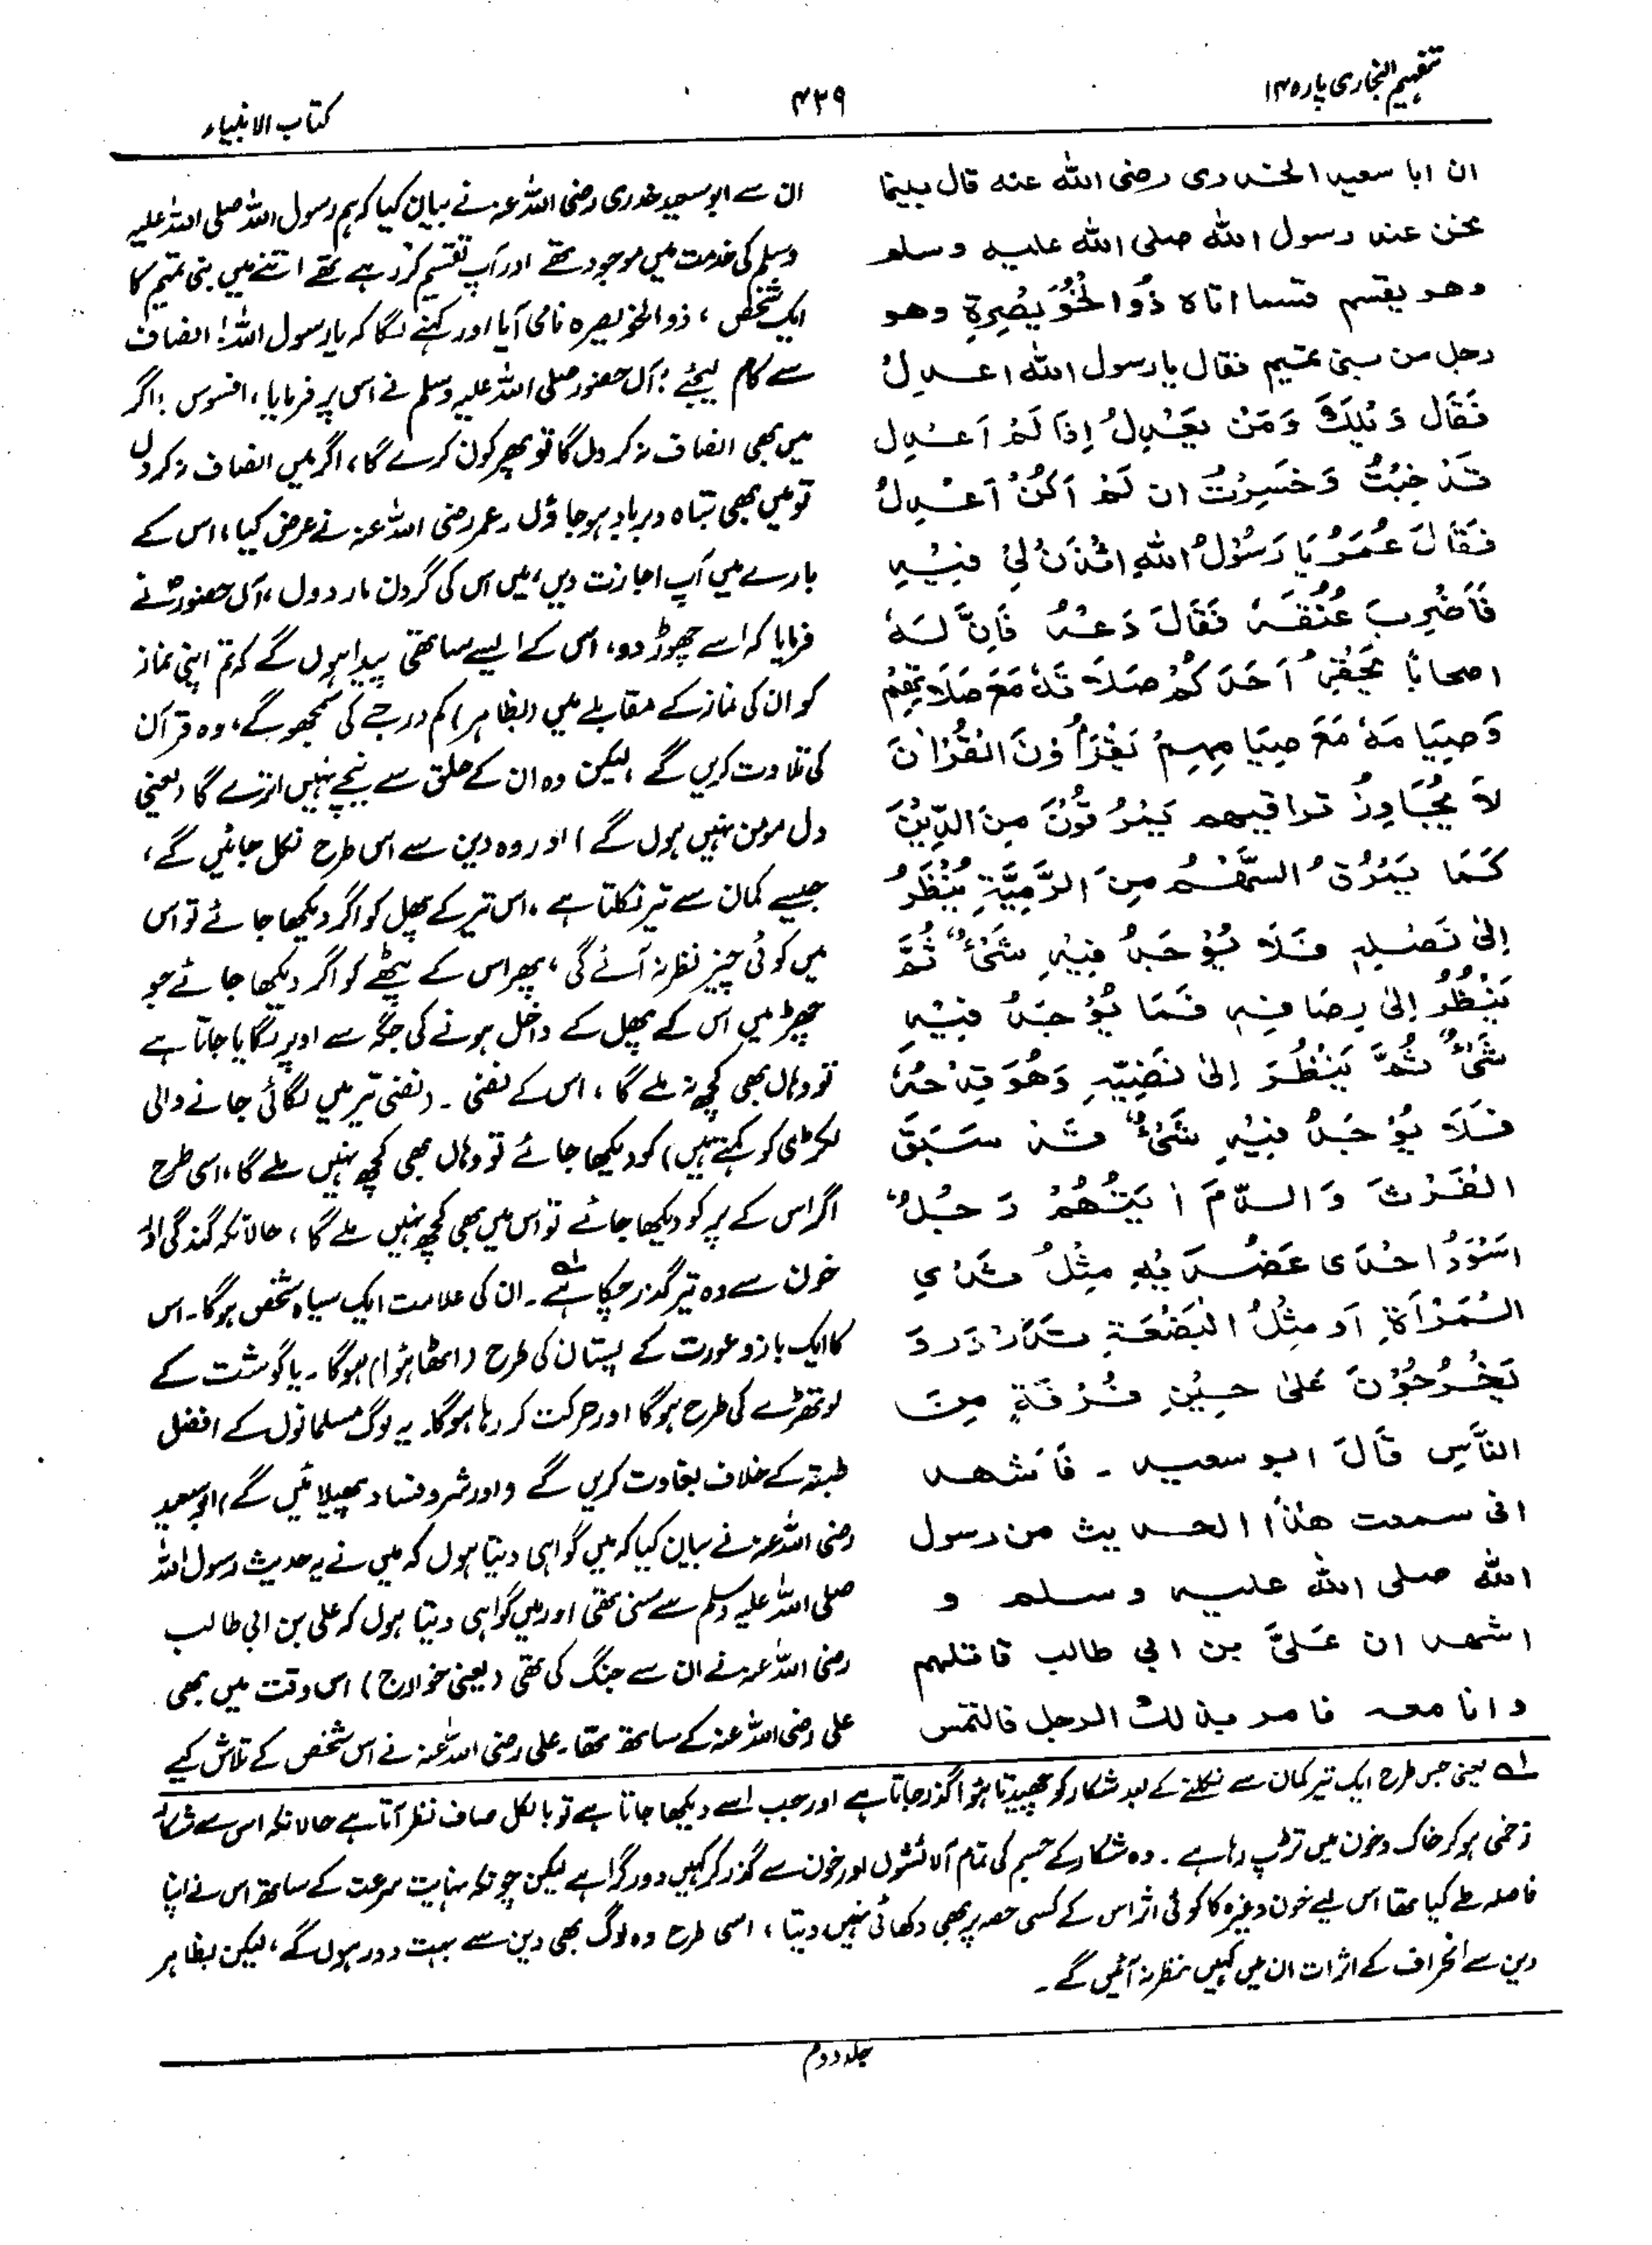 تفہیم البخاری پارہ ۱۴
۴۲۹
کتاب الانبیاء
ان ابا سعید الخدری رضی اللہ عنہ قال بینما
نحن عند رسول اللہ صلی اللہ علیہ وسلم
وھو یقسم قسما اتاہ ذُوالْخُوَیْصِرَۃِ وھو
رجل من بنی تمیم فقال یا رسول اللہ اعدِلْ
فَقَال وَیْلَکَ وَمَنْ یَعْدِلُ اِذَا لَمْ اَعْدِل
قَدْ خِبْتُ وَخَسِرْتُ ان لَمْ اَکُنْ اَعْدِلُ
فَقَالَ عُمَرُ یَا رَسُوْلُ اللہِ ائْذَنْ لِیْ فِیْہِ
فَاَضْرِبَ عُنُقَہٗ فَقَالَ دَعْہُ فَاِنَّ لَہٗ
اصحابًا یَحْقِرُ اَحَدُکُمْ صَلَاتَہٗ مَعَ صَلَاتِھِمْ
وَصِیَامَہٗ مَعَ صِیَامِہِمْ یَقْرَأُوْنَ الْقُرْاٰنَ
لَا یُجَاوِزُ تراقیھم یَمْرُقُوْنَ مِنَ الدِّیْنِ
کَمَا یَمْرُقُ السَّھْمُ مِنَ الرَّمِیَّۃِ یُنْظَرُ
اِلٰی نَصْلِہٖ فَلَا یُوْجَدُ فِیْہِ شَیْءٌ ثُمَّ
یُنْظُرُ اِلٰی رِصَافِہٖ فَمَا یُوْجَدُ فِیْہِ
شَیْءٌ ثُمَّ یُنْظَرُ اِلٰی نَضِیِّہٖ وَھُوَ قِدْحُہٗ
فَلَا یُوْجَدُ فِیْہِ شَیْءٌ قَدْ سَبَقَ
الْفَرْثَ وَالدَّمَ اٰیَتُھُمْ رَجُلٌ
اَسْوَدُ احْدٰی عَضُدَیْہِ مِثْلُ ثَدْیِ
الْمَرْأَۃِ اَو مِثْلُ الْبَضْعَۃِ تَدَرْدَرُ وَ
یَخْرُجُوْنَ عَلٰی حِیْنِ فُرْقَۃٍ مِنَ
النَّاسِ قَالَ ابو سعید ۔ فَاَشھد
انی سمعت ھٰذا الحدیث من رسول
اللہ صلی اللہ علیہ وسلم و
اشھد ان عَلِیَّ بن ابی طالب قاتلھم
وانا معہ فامر بذلک الرجل فالتمس
ان سے ابو سعید خدری رضی اللہ عنہ نے بیان کیا کہ ہم رسول اللہ صلی اللہ علیہ
وسلم کی خدمت میں موجود تھے اور آپ تقسیم کر رہے تھے اتنے میں بنی تمیم کا
ایک شخص، ذوالخویصرہ نامی آیا اور کہنے لگا کہ یا رسول اللہ! انصاف
سے کام لیجئے! آں حضور صلی اللہ علیہ وسلم نے اس پر فرمایا، افسوس! اگر
میں بھی انصاف نہ کروں گا تو پھر کون کرے گا، اگر میں انصاف نہ کروں
تو میں بھی تباہ و برباد ہو جاؤں۔ عمر رضی اللہ عنہ نے عرض کیا، اس کے
بارے میں آپ اجازت دیں، میں اس کی گردن مار دوں، آں حضورؐ نے
فرمایا کہ اسے چھوڑ دو، اس کے ایسے ساتھی پیدا ہوں گے کہ تم اپنی نماز
کو ان کی نماز کے مقابلے میں (بظاہر) کم درجے کی سمجھو گے، وہ قرآن
کی تلاوت کریں گے، لیکن وہ ان کے حلق سے نیچے نہیں اترے گا (یعنی
دل مومن نہیں ہوں گے) اور وہ دین سے اس طرح نکل جائیں گے،
جیسے کمان سے تیر نکلتا ہے، اس تیر کے پھل کو اگر دیکھا جائے تو اس
میں کوئی چیز نظر نہ آئے گی، پھر اس کے پٹھے کو اگر دیکھا جائے جو
چھڑ میں اس کے پھل کے داخل ہونے کی جگہ سے اوپر لگایا جاتا ہے
تو وہاں بھی کچھ نہ ملے گا، اس کے نضی ۔ (نضی تیر میں لگائی جانے والی
لکڑی کو کہتے ہیں) کو دیکھا جائے تو وہاں بھی کچھ نہیں ملے گا، اسی طرح
اگر اس کے پر کو دیکھا جائے تو اس میں بھی کچھ نہیں ملے گا، حالانکہ گندگی اور
خون سے وہ تیر گذر چکا ہے۔ ان کی علامت ایک سیاہ شخص ہوگا۔ اس
کا ایک بازو عورت کے پستان کی طرح (اٹھا ہوا) ہوگا۔ یا گوشت کے
لوتھڑے کی طرح ہوگا اور حرکت کر رہا ہوگا۔ یہ لوگ مسلمانوں کے افضل
طبقہ کے خلاف بغاوت کریں گے (اور شر و فساد پھیلائیں گے) ابو سعید
رضی اللہ عنہ نے بیان کیا کہ میں گواہی دیتا ہوں کہ میں نے یہ حدیث رسول اللہ
صلی اللہ علیہ وسلم سے سنی تھی اور میں گواہی دیتا ہوں کہ علی بن ابی طالب
رضی اللہ عنہ نے ان سے جنگ کی تھی (یعنی خوارج) اس وقت میں بھی
علی رضی اللہ عنہ کے ساتھ تھا۔ علی رضی اللہ عنہ نے اس شخص کے تلاش کیے
لہ یعنی جس طرح ایک تیر کمان سے نکلنے کے بعد شکار کو چھیدتا ہوا گذر جاتا ہے اور جب اسے دیکھا جاتا ہے تو بالکل صاف نظر آتا ہے حالانکہ اس سے شکار
زخمی ہو کر خاک و خون میں تڑپ رہا ہے۔ وہ شکار کے جسم کی تمام آلائشوں اور خون سے گذر کر کہیں دور گرا ہے لیکن چونکہ نہایت سرعت کے ساتھ اس نے اپنا
فاصلہ طے کیا تھا اس لیے خون وغیرہ کا کوئی اثر اس کے کسی حصہ پر بھی دکھائی نہیں دیتا، اسی طرح وہ لوگ بھی دین سے بہت دور ہوں گے، لیکن بظاہر
دین سے انحراف کے اثرات ان میں کہیں نظر نہ آئیں گے۔
جلد دوم